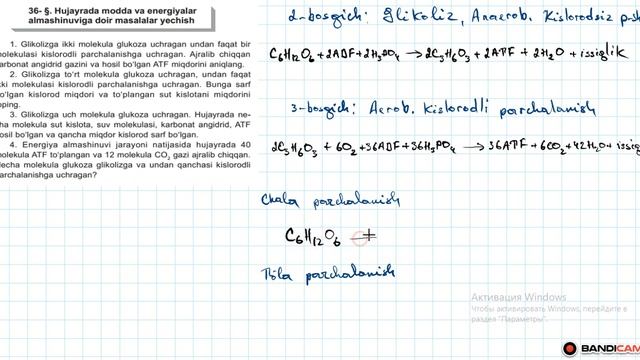 36- §. Hujayrada modda va energiyalar
almashinuviga doir masalalar yechish
1. Glikolizga ikki molekula glukoza uchragan undan faqat bir
molekulasi kislorodli parchalanishga uchragan. Ajralib chiqqan
karbonat angidrid gazini va hosil bo'lgan ATF miqdorini aniqlang.
2. Glikolizga to'rt molekula glukoza uchragan, undan faqat
ikki molekulasi kislorodli parchalanishga uchragan. Bunga sarf
bo'lgan kislorod miqdori va to'plangan sut kislotani miqdorini
toping.
3. Glikolizga uch molekula glukoza uchragan. Hujayrada ne-
cha molekula sut kislota, suv molekulasi, karbonat angidrid, ATF
hosil bo'lgan va qancha miqdor kislorod sarf bo'lgan.
4. Energiya almashinuvi jarayoni natijasida hujayrada 40
molekula ATF to'plangan va 12 molekula CO₂ gazi ajralib chiqqan.
Necha molekula glukoza glikolizga va undan qanchasi kislorodli
parchalanishga uchragan?
2-bosqich: Glikoliz, Anaerob. Kislorodsiz p-sh
C₆H₁₂O₆+2ADF+2H₃PO₄ → 2C₃H₆O₃+2ATF+2H₂O+issiqlik
3-bosqich: Aerob. Kislorodli parchalanish
2C₃H₆O₃+6O₂+36ADF+36H₃PO₄ → 36ATF+6CO₂+42H₂O+issiq
Chala parchalanish
C₆H₁₂O₆
To'la parchalanish
Активация Windows
Чтобы активировать Windows, перейдите в
раздел "Параметры".
BANDICAM